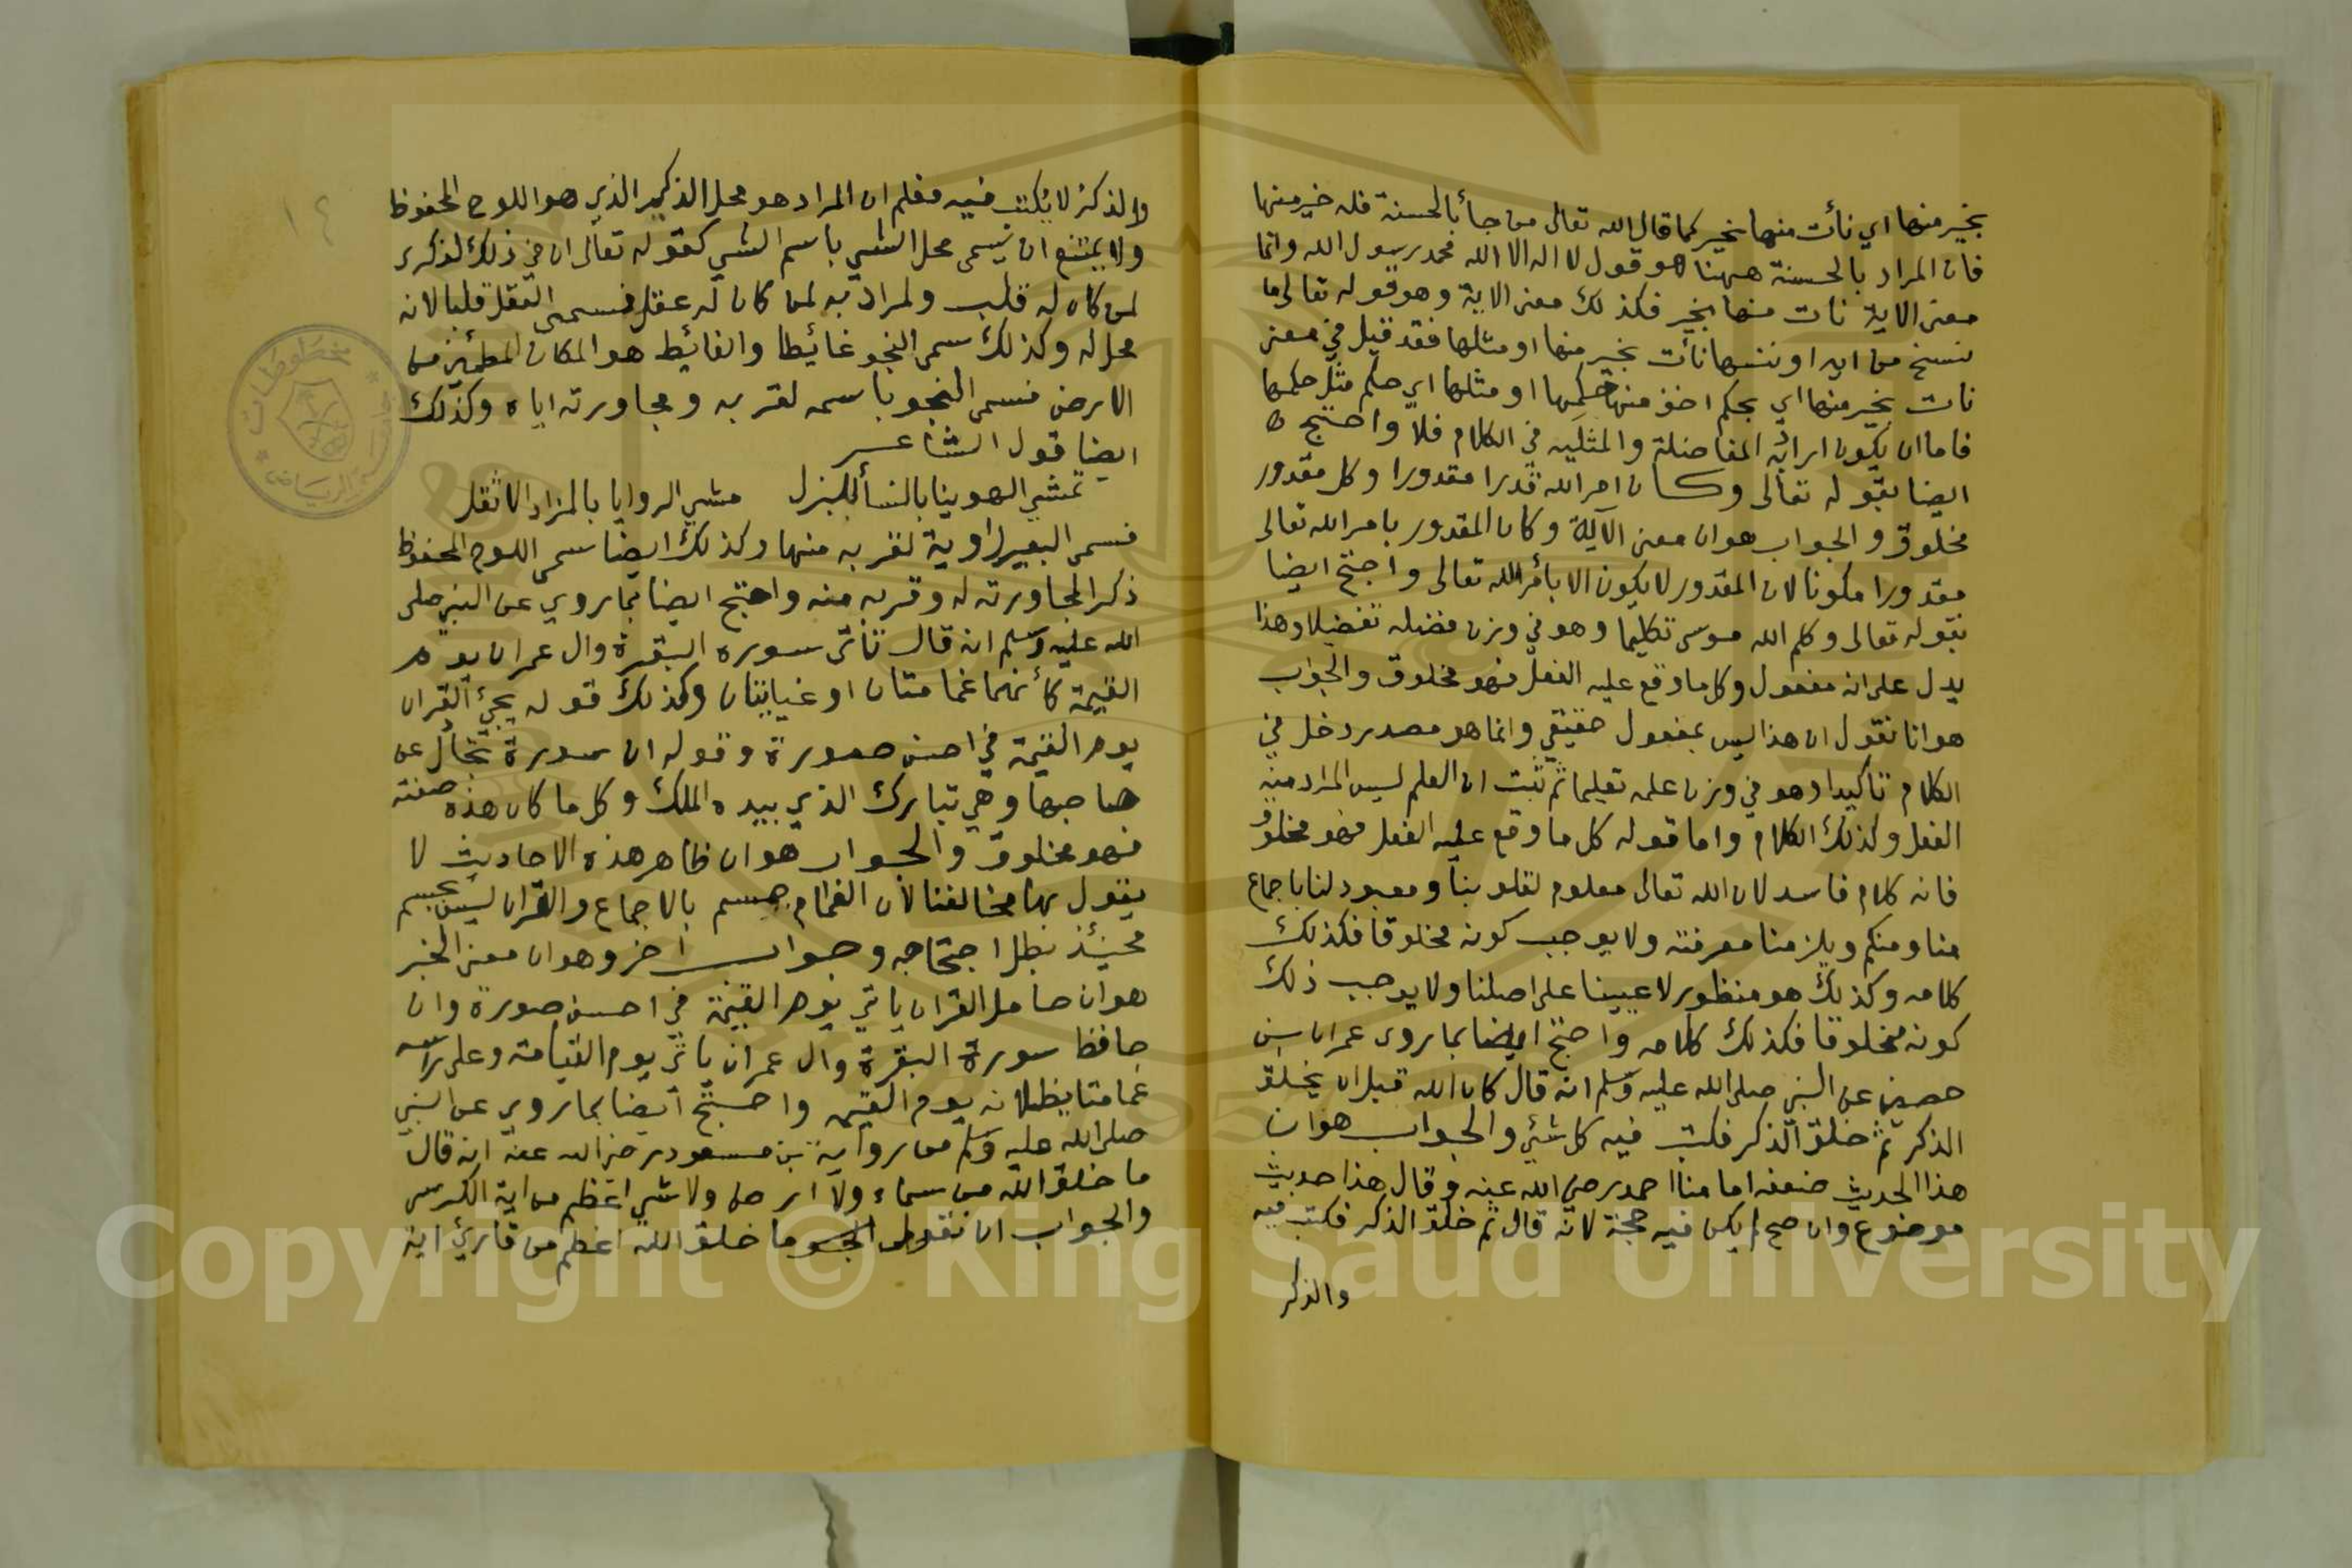 بخير منها اي نأت منها بخير كما قال الله تعالى من جأ بالحسنة فله خير منها
فان المراد بالحسنة ههنا هو قول لا اله الا الله محمد رسول الله وانما
معنى الاية نات منها بخير فكذلك معنى الاية وهو قوله تعالى ما
ننسخ من ايه او ننسها نأت بخير منها او مثلها فقد قيل في معنى
نات بخير منها اي بحكم اخف منها حكمها او مثلها اي حكم مثل حكمها
فاما ان يكون اراد به المفاضلة والمثليه في الكلام فلا واحتج
ايضا بقوله تعالى وكان امر الله قدرا مقدورا وكل مقدور
مخلوق والجواب هو ان معنى الآية وكان المقدور بامر الله تعالى
مقدورا مكونا لان المقدور لا يكون الا بأمر الله تعالى واحتج ايضا
بقوله تعالى وكلم الله موسى تكليما وهو في وزن فضله تفضيلا وهذا
يدل على انه مفعول وكل ما وقع عليه الفعل فهو مخلوق والجواب
هو انا نقول ان هذا ليس بمفعول حقيقي وانما هو مصدر دخل في
الكلام تاكيدا وهو في وزن علمه تعليما ثم ثبت ان العلم ليس المراد منه
الفعل وكذلك الكلام واما قوله كل ما وقع عليه الفعل فهو مخلوق
فانه كلام فاسد لان الله تعالى معلوم لقلوبنا ومعبود لنا باجماع
منا ومنكم ويلزمنا معرفته ولا يوجب كونه مخلوقا فكذلك
كلامه وكذلك هو منظور لاعيينا على اصلنا ولا يوجب ذلك
كونه مخلوقا فكذلك كلامه واحتج ايضا بما روى عمران بن
حصين عن النبي صلى الله عليه وسلم انه قال كان الله قبل ان يخلق
الذكر ثم خلق الذكر فكتب فيه كل شئي والجواب هو ان
هذا الحديث ضعفه امامنا احمد رضي الله عنه وقال هذا حديث
موضوع وان صح لم يكن فيه حجة لانه قال ثم خلق الذكر فكتب فيه
والذكر
والذكر لا يكتب فيه فعلم ان المراد هو محل الذكر الذي هو اللوح المحفوظ
ولا يمتنع ان يسمى محل الشي باسم الشي كقوله تعالى ان في ذلك لذكرى
لمن كان له قلب ولمراد به لمن كان له عقل فسمى العقل قلبا لانه
محل له وكذلك سمى النجو غائيطا والغائيط هو المكان المطمئن من
الارض فسمى النجو باسمه لقربه ومجاورته اياه وكذلك
ايضا قول الشاعر
تمشي الهوينا بالنسأ البزل مشي الروايا بالمزاد الاثقل
فسمى البعير راوية لقربه منها وكذلك ايضا سمى اللوح المحفوظ
ذكرا لمجاورته له وقربه منه واحتج ايضا بما روي عن النبي صلى
الله عليه وسلم انه قال تأتى سورة البقرة وال عمران يوم
القيمة كأنهما غمامتان او غيابتان وكذلك قوله يجئ القران
يوم القيمة في احسن صورة وقوله ان سورة تجادل عن
صاحبها وهي تبارك الذي بيده الملك وكل ما كان هذه صفته
فهو مخلوق والجواب هو ان ظاهر هذه الاحاديث لا
يقول بها مخالفنا لان الغمام جسم بالاجماع والقران ليس بجسم
فحينئذ بطل احتجاجه وجواب اخر وهو ان معنى الخبر
هو ان حامل القران ياتي يوم القيمة في احسن صورة وان
حافظ سورة البقرة وال عمران ياتى يوم القيامة وعلى راسه
غمامتا يظلانه يوم القيمه واحتج أيضا بما روي عن النبي
صلى الله عليه وسلم من رواية بن مسعود رضى الله عنه انه قال
ما خلق الله من سماء ولا ارض ولا شي اعظم من اية الكرسى
والجواب ان نقول ما خلق الله اعظم من قارئ اية
١٤
مخطوطات
جامعة الرياض
Copyright © King Saud University